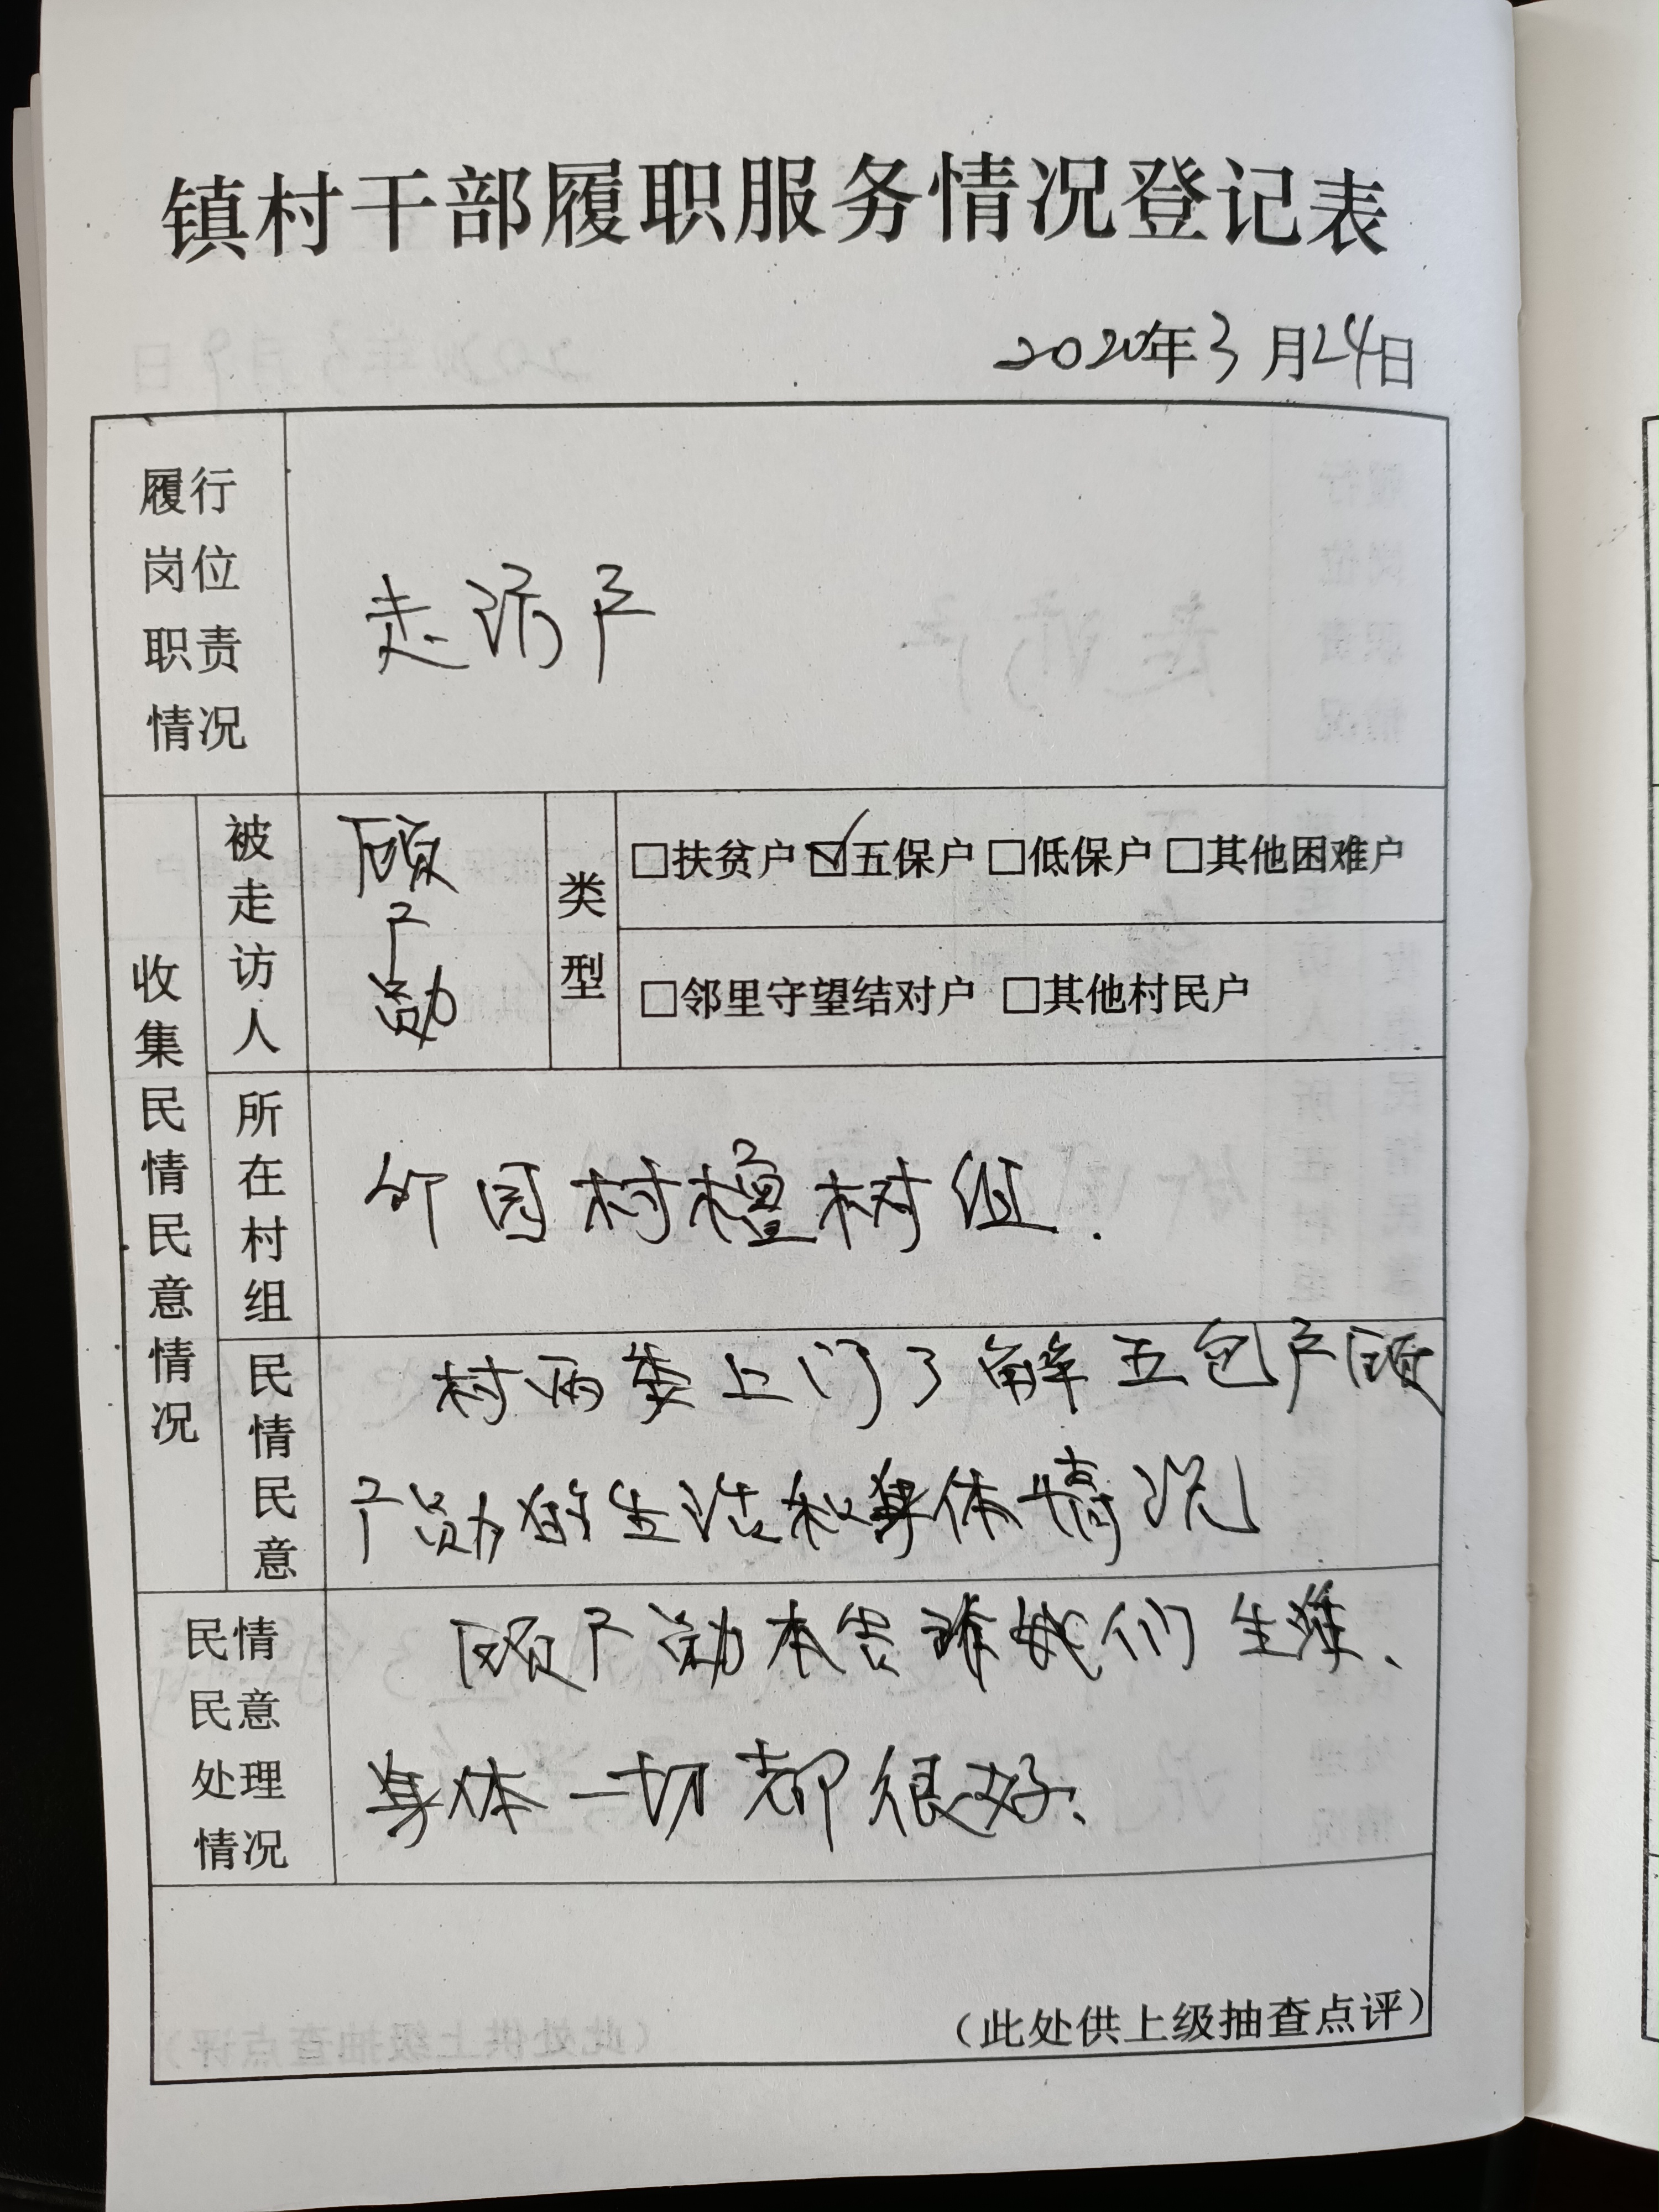 镇村干部履职服务情况登记表
2020年3月24日
履行
岗位
职责
情况
走访户
收集民情民意情况
被走访人
顾广勋
类型
□扶贫户 ☑五保户 □低保户 □其他困难户
□邻里守望结对户 □其他村民户
所在村组
园村檀树组.
民情民意
村两委上门了解五包户顾
广勋的生活和身体情况
民情
民意
处理
情况
顾广勋告诉我们生准、
身体一切都很好、
(此处供上级抽查点评)